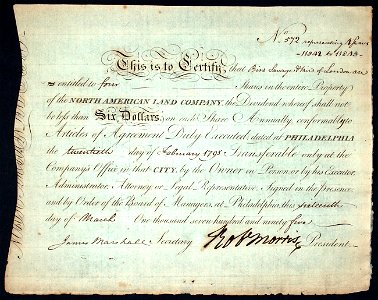 No. 572 representing Shares
This is to Certify, that Bird Savage & Bird of London are
entitled to four Shares in the entire Property
of the NORTH AMERICAN LAND COMPANY, the Dividend whereof shall not
be less than Six Dollars, on each Share Annually, conformably to
Articles of Agreement Duly Executed; dated at PHILADELPHIA
the twentieth day of February 1795 Transferable only at the
Company's Office in that CITY, by the Owner in Person or by his Executor,
Administrator, Attorney or Legal Representative. Signed in the presence
and by Order of the Board of Managers, at Philadelphia, this sixteenth
day of March One thousand seven hundred and ninety five
James Marshall Secretary Rob Morris President